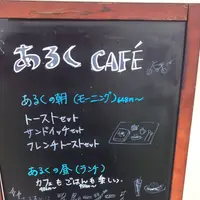 あるく CAFÉ
あるくの朝(モーニング)
トーストセット
サンドイッチセット
フレンチトーストセット
あるくの昼(ランチ)
カフェもごはんも楽しい。